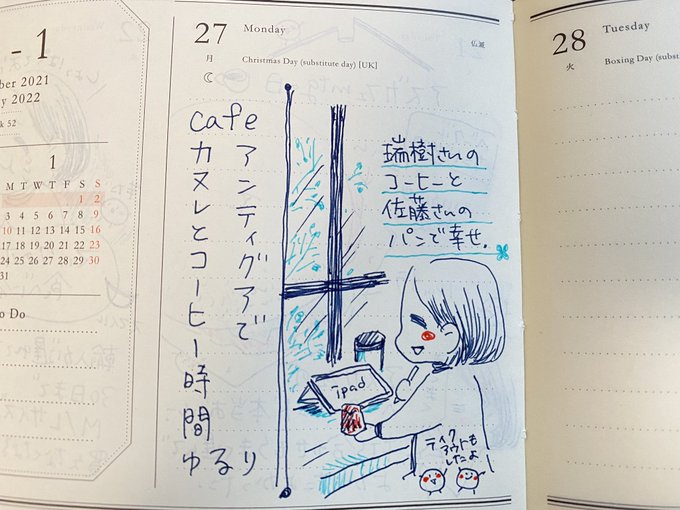 - 1
ber 2021
y 2022
k 52
1
M T W T F S S
1 2
3 4 5 6 7 8 9
10 11 12 13 14 15 16
17 18 19 20 21 22 23
24 25 26 27 28 29 30
31
o Do
27 Monday
仏滅
月
Christmas Day (substitute day) [UK]
cafe アンティグアで
カヌレとコーヒー時間
ゆるり
瑞樹さんの
コーヒーと
佐藤さんの
パンで幸せ。
ipad
ティク
アウトも
したよ
28 Tuesday
火
Boxing Day (subst